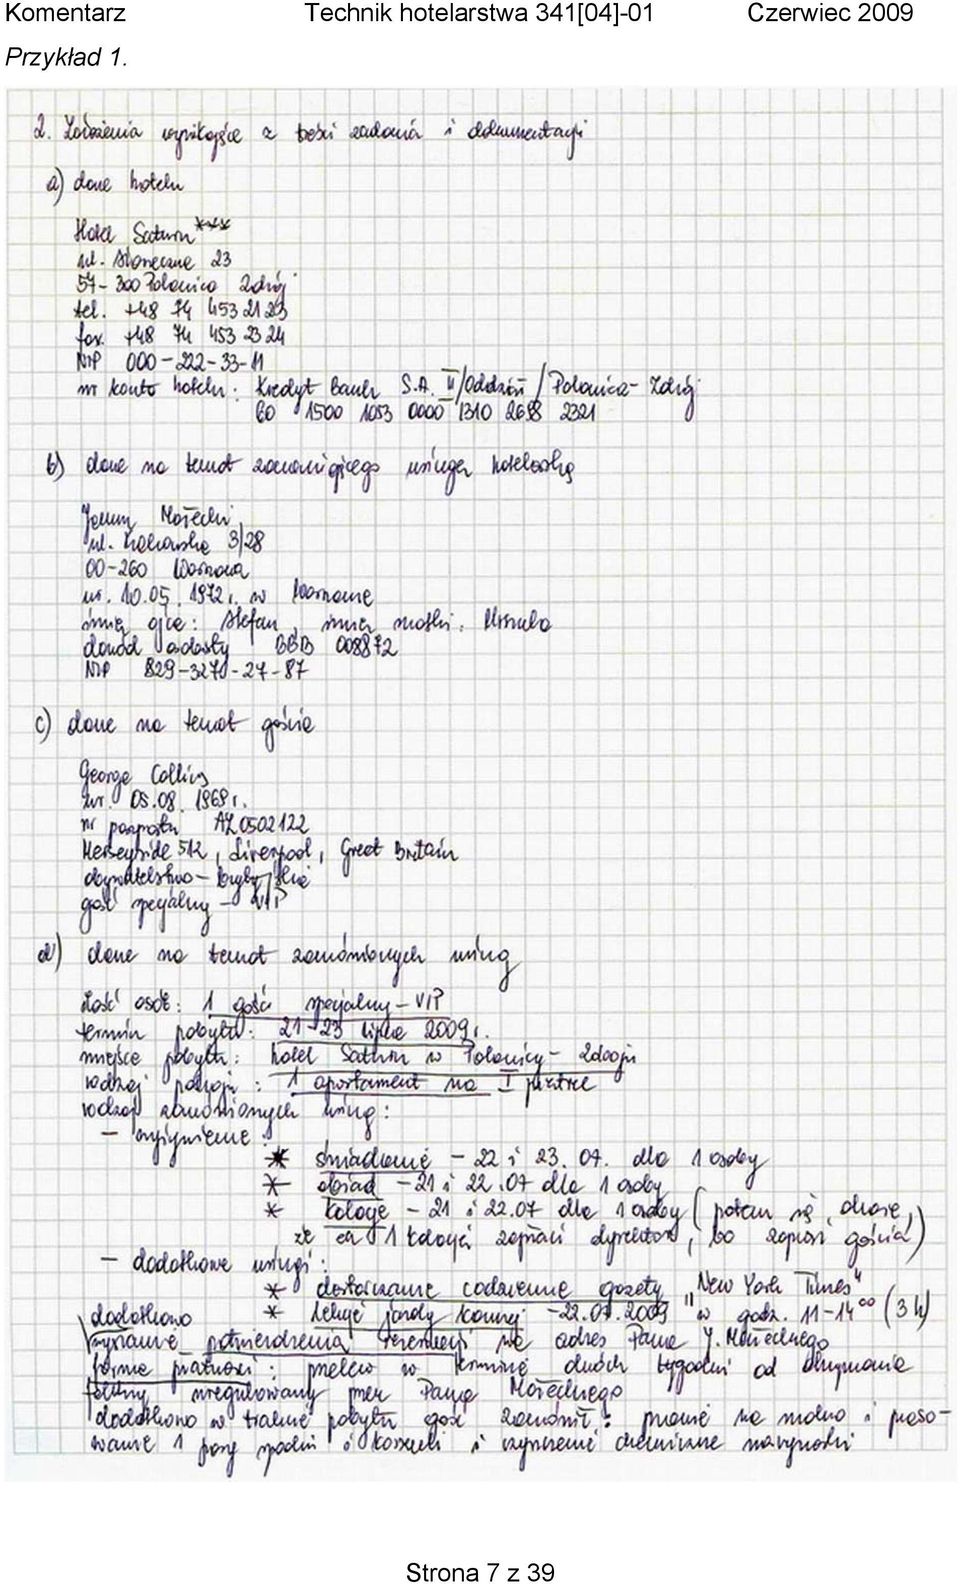 Komentarz Technik hotelarstwa 341[04]-01 Czerwiec 2009
Przykład 1.
2. Założenia wynikające z treści zadania i dokumentacji
a) dane hotelu
Hotel Saturn***
ul. Słoneczna 23
57-300 Polanica Zdrój
tel. +48 74 453 21 23
fax. +48 74 453 23 24
NIP 000-222-33-11
nr konta hotelu: Kredyt Bank S.A. II/Oddział / Polanica-Zdrój
60 1500 1053 0000 1310 2698 2321
b) dane na temat zamawiającego usługę hotelarską
Mołecki
ul. Krakowska 3/28
00-260 Warszawa
ur. 10.05.1972r. w Warszawie
imię ojca: Stefan, imię matki: Urszula
dowód osobisty BBB 008872
NIP 829-3270-27-87
c) dane na temat gościa
George Collins
ur. 05.08.1969r.
nr paszportu AZ0502122
Merseyside 512, Liverpool, Great Britain
obywatelstwo - brytyjskie
gość specjalny - VIP
d) dane na temat zamówionych usług
ilość osób: 1 gość specjalny - VIP
termin pobytu: 21-23 lipca 2009r.
miejsce pobytu: hotel Saturn w Polanicy-Zdroju
rodzaj pokoju: 1 apartament na I piętrze
rodzaj zamówionych usług:
- wyżywienie:
* śniadanie - 22 i 23.07. dla 1 osoby
* obiad - 21 i 22.07 dla 1 osoby
* kolacje - 21 i 22.07 dla 1 osoby (potem się okaże,
że za 1 kolację zapłaci dyrektor, bo zaprosi gościa)
- dodatkowe usługi:
* dostarczanie codzienne gazety "New York Times"
dodatkowo * lekcje jazdy konnej - 22.07.2009 w godz. 11-14⁰⁰ (3 h)
potwierdzenia rezerwacji na adres Pana J. Mołeckiego
forma płatności: przelew w terminie dwóch tygodni od otrzymania
faktury uregulowany przez Pana Mołeckiego
dodatkowo w trakcie pobytu gość zamówił: pranie na mokro i praso-
wanie 1 pary spodni i koszuli i czyszczenie chemiczne marynarki
Strona 7 z 39